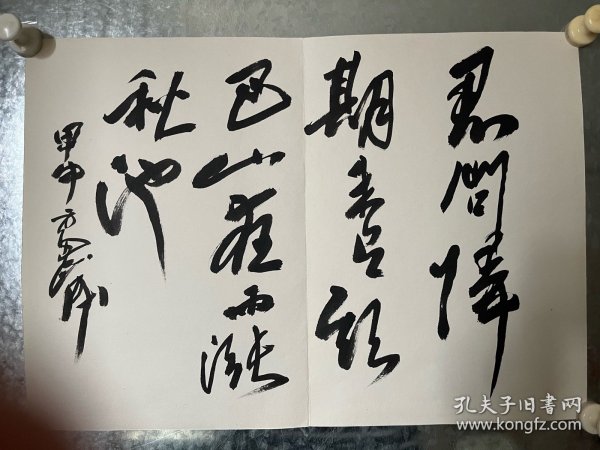 君問歸
期未有期
巴山夜雨漲
秋池
甲申
孔夫子旧書网
www.kongfz.com